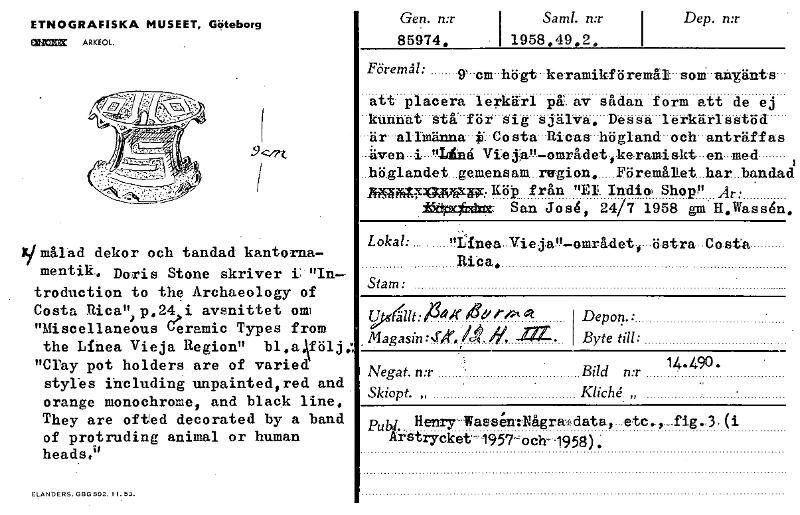 ETNOGRAFISKA MUSEET, Göteborg
ARKEOL.
9cm
x/ målad dekor och tandad kantorna-
mentik. Doris Stone skriver i "In-
troduction to the Archaeology of
Costa Rica", p.24, i avsnittet om
"Miscellaneous Ceramic Types from
the Línea Vieja Region" bl.a. följ.:
"Clay pot holders are of varied
styles including unpainted, red and
orange monochrome, and black line.
They are ofted decorated by a band
of protruding animal or human
heads."
ELANDERS, GBG 502. 11. 53.
Gen. n:r
85974.
Saml. n:r
1958.49.2.
Dep. n:r
Föremål: 9 cm högt keramikföremål som använts
att placera lerkärl på av sådan form att de ej
kunnat stå för sig själva. Dessa lerkärlsstöd
är allmänna i Costa Ricas högland och anträffas
även i "Línea Vieja"-området, keramiskt en med
höglandet gemensam region. Föremålet har bandad
Köp från "El Indio Shop" År:
San José, 24/7 1958 gm H.Wassén.
Lokal: "Línea Vieja"-området, östra Costa
Rica.
Stam:
Utställt: Bak Burma
Magasin: sk. 12 H. III.
Depon.:
Byte till:
Negat. n:r
Skiopt. „
Bild n:r 14.490.
Kliché „
Publ. Henry Wassén: Några data, etc., fig.3 (i
Årstrycket 1957 och 1958).